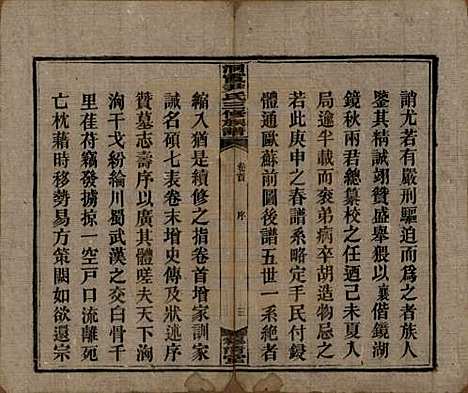 誚尤若有嚴刑驅迫而爲之者族人
鑒其精誠翊贊盛舉猥以襄偕鏡湖
鏡秋兩君總纂校之任遞己未夏入
局逾半載而袞弟病卒胡造物忌之
若此庚申之春譜系略定手民付鋟
體通歐蘇前圖後譜五世一系絶者
氏三修族譜
卷首
序
三
縮入猶前續修之指卷首增家訓家
誡名碩七表卷末增史傳及狀述序
贊墓志壽序以廣其體嗟夫天下洶
洶干戈紛綸川蜀武漢之交白骨千
里萑苻竊發擄掠一空戸口流離死
亡枕藉時移勢易方策闕如欲還宗